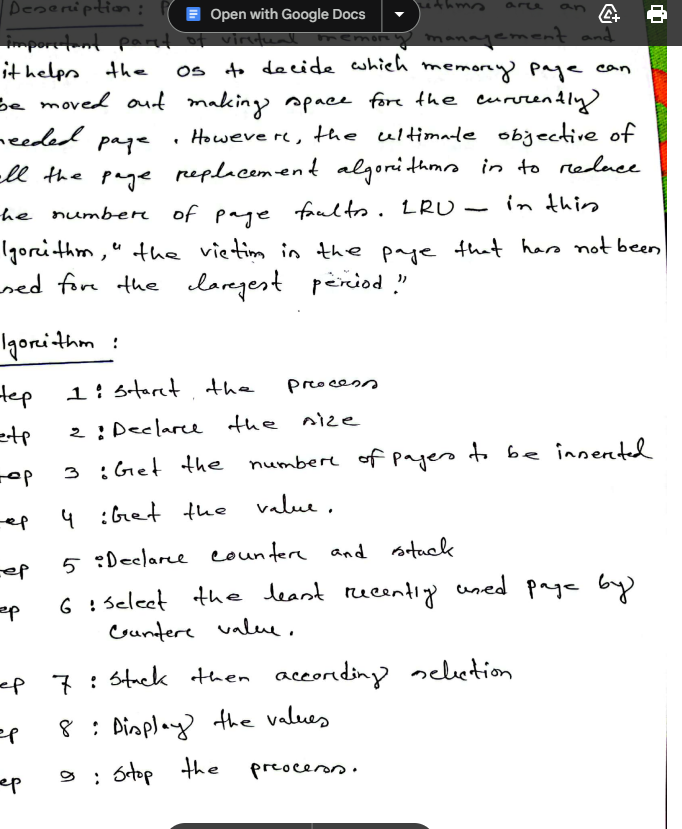 Description : P
Open with Google Docs
uthms are an
important part of virtual memory management and
it helps the OS to decide which memory page can
be moved out making space for the currently
needed page . However, the ultimate objective of
all the page replacement algorithms is to reduce
he number of page faults. LRU — in this
lgorithm, " the victim is the page that has not been
sed for the largest period."
lgorithm :
tep 1 : Start the process
etp 2 : Declare the size
ep 3 : Get the number of pages to be inserted
ep 4 : Get the value .
ep 5 : Declare counter and stack
ep 6 : Select the least recently used page by
counter value .
ep 7 : Stack then according selection
ep 8 : Display the values
ep 9 : Stop the process .